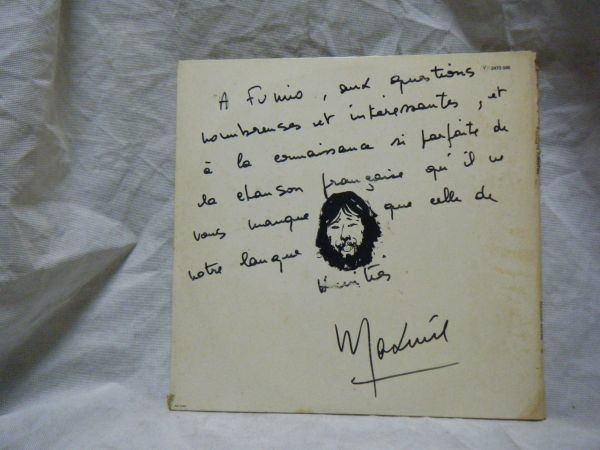 2473 046
A Fumio, aux questions
nombreuses et intéressantes, et
à la connaissance si parfaite de
la chanson française qu'il ne
vous manque que celle de
notre langue
Amitiés